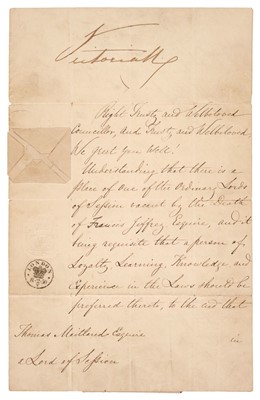 Victoria R
Right Trusty and Welbeloved
Councillor, and Trusty and Welbeloved
We greet You Well!
Understanding that there is a
place of one of the Ordinary Lords
of Session vacant by the Death
of Francis Jeffrey Esquire, and it
being requisite that a person of
Loyalty Learning, Knowledge and
Experience in the Laws should be
preferred thereto, to the end that
Thomas Maitland Esquire in
a Lord of Session